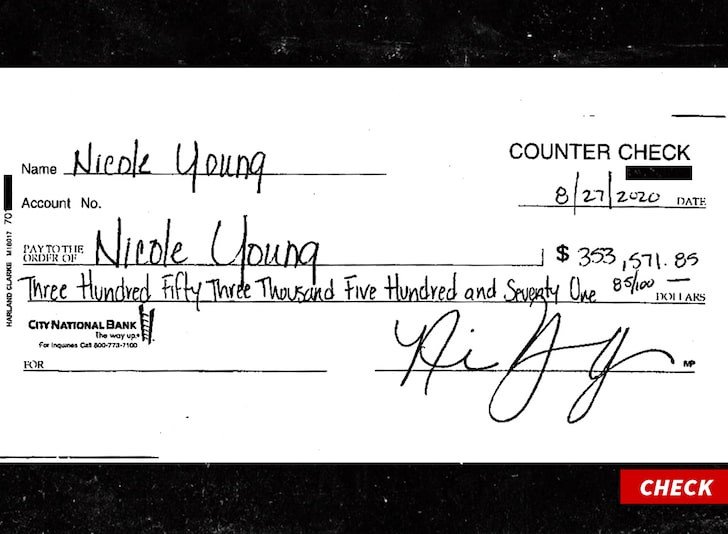 COUNTER CHECK
Name Nicole Young
8/27/2020 DATE
Account No.
HARLAND CLARKE M18017 701
PAY TO THE ORDER OF Nicole Young $ 353,571.85
Three Hundred Fifty Three Thousand Five Hundred and Seventy One 85/100 DOLLARS
CITY NATIONAL BANK
The way up.
For Inquiries Call 800-773-7100
FOR
MP
CHECK